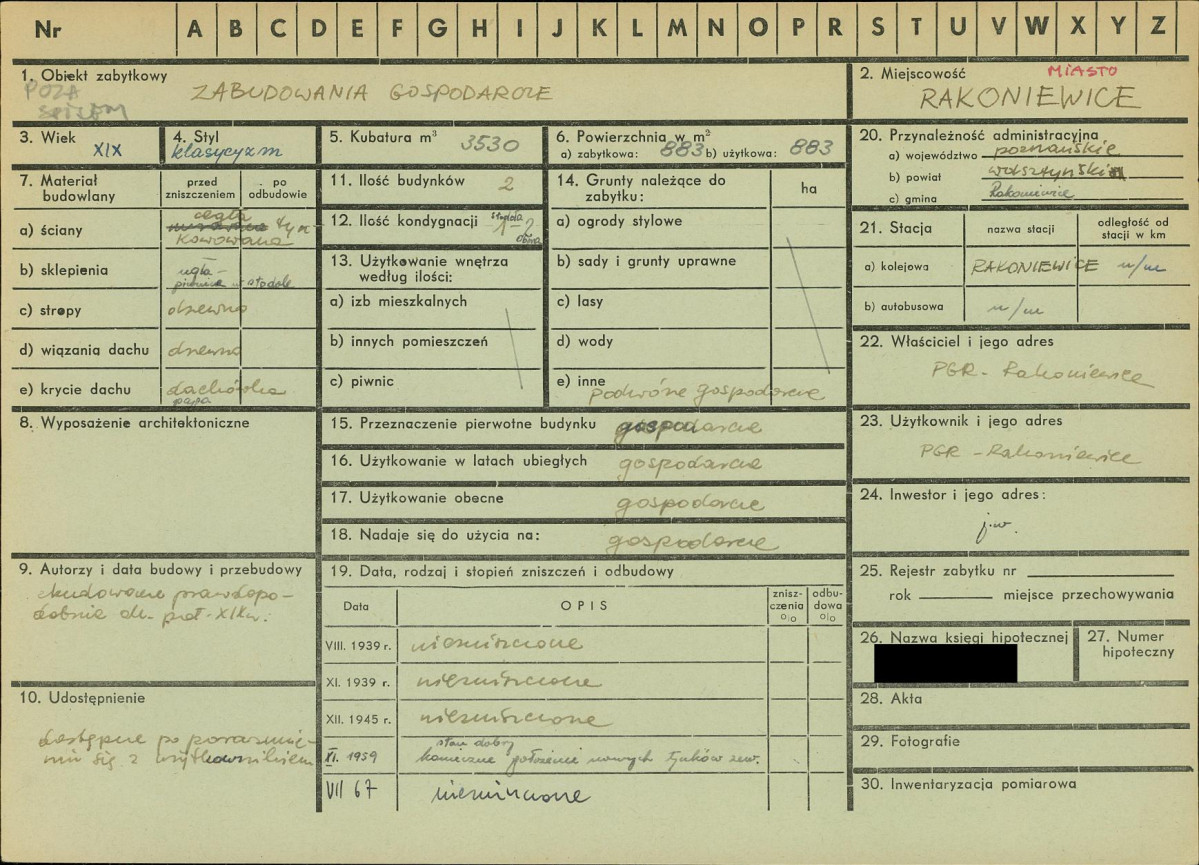 Nr A B C D E F G H I J K L M N O P R S T U V W X Y Z
1. Obiekt zabytkowy
POZA
SPISEM
ZABUDOWANIA GOSPODARCZE
2. Miejscowość
MIASTO
RAKONIEWICE
3. Wiek
XIX
4. Styl
klasycyzm
5. Kubatura m³ 3530
6. Powierzchnia w m²
a) zabytkowa: 883 b) użytkowa: 883
20. Przynależność administracyjna
a) województwo poznańskie
b) powiat wolsztyński
c) gmina Rakoniewice
7. Materiał budowlany
przed zniszczeniem
po odbudowie
a) ściany
cegła
tyn-
kowowana
b) sklepienia
piwnica w stodole
c) stropy drewno
d) wiązania dachu drewno
e) krycie dachu dachówka
papa
11. Ilość budynków 2
12. Ilość kondygnacji stodoła
1-2
obora
13. Użytkowanie wnętrza
według ilości:
a) izb mieszkalnych
b) innych pomieszczeń
c) piwnic
14. Grunty należące do
zabytku:
ha
a) ogrody stylowe
b) sady i grunty uprawne
c) lasy
d) wody
e) inne
podwórze gospodarcze
21. Stacja
nazwa stacji
odległość od
stacji w km
a) kolejowa RAKONIEWICE n/m
b) autobusowa n/m
22. Właściciel i jego adres
PGR - Rakoniewice
8. Wyposażenie architektoniczne
15. Przeznaczenie pierwotne budynku gospodarcze
16. Użytkowanie w latach ubiegłych gospodarcze
17. Użytkowanie obecne gospodarcze
18. Nadaje się do użycia na: gospodarcze
23. Użytkownik i jego adres
PGR - Rakoniewice
24. Inwestor i jego adres:
j.w.
9. Autorzy i data budowy i przebudowy
zbudowane prawdopo-
dobnie ok. poł. XIX w.
19. Data, rodzaj i stopień zniszczeń i odbudowy
Data
OPIS
znisz-
czenia
o|o
odbu-
dowa
o|o
VIII. 1939 r. niezniszczone
XI. 1939 r. niezniszczone
XII. 1945 r. niezniszczone
stan dobry
XI. 1959 konieczne położenie nowych tynków zew.
VII 67 niezniszczone
25. Rejestr zabytku nr
rok miejsce przechowywania
26. Nazwa księgi hipotecznej
27. Numer
hipoteczny
10. Udostępnienie
dostępne po porozumie-
niu się z użytkownikiem
28. Akta
29. Fotografie
30. Inwentaryzacja pomiarowa